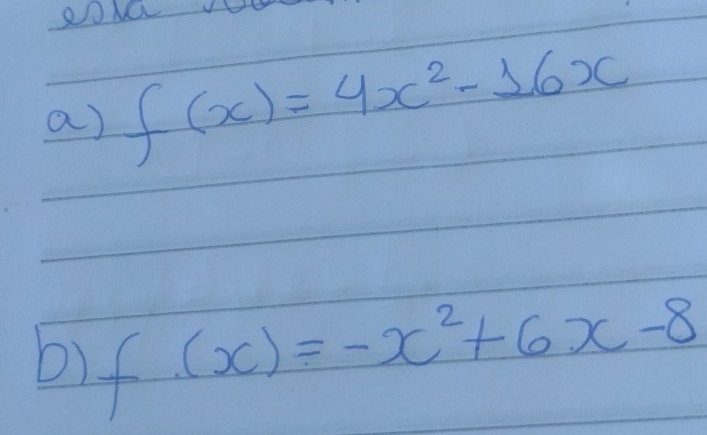 a) f(x) = 4x² - 16x
b) f(x) = -x² + 6x - 8